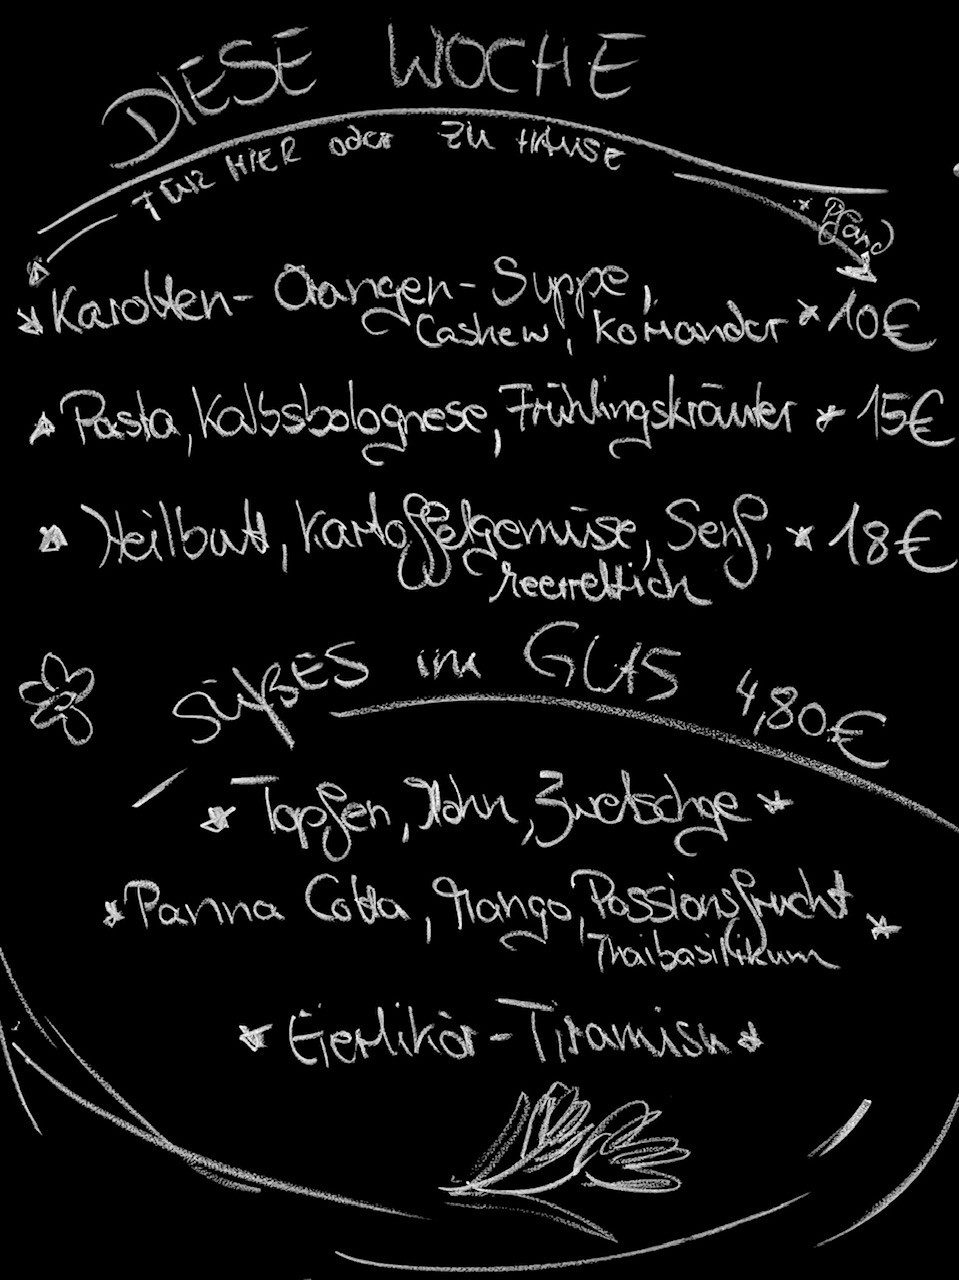 DIESE WOCHE
FÜR HIER oder ZU HAUSE
+ Pfand
Karotten-Orangen-Suppe,
Cashew, Koriander * 10€
Pasta, Kalbsbolognese, Frühlingskräuter * 15€
Heilbutt, Kartoffelgemüse, Senf, * 18€
Meerrettich
SÜßES im GLAS 4,80€
Topfen, Mohn, Zwetschge
Panna Cotta, Mango, Passionsfrucht
Thaibasilikum
Eierlikör-Tiramisu